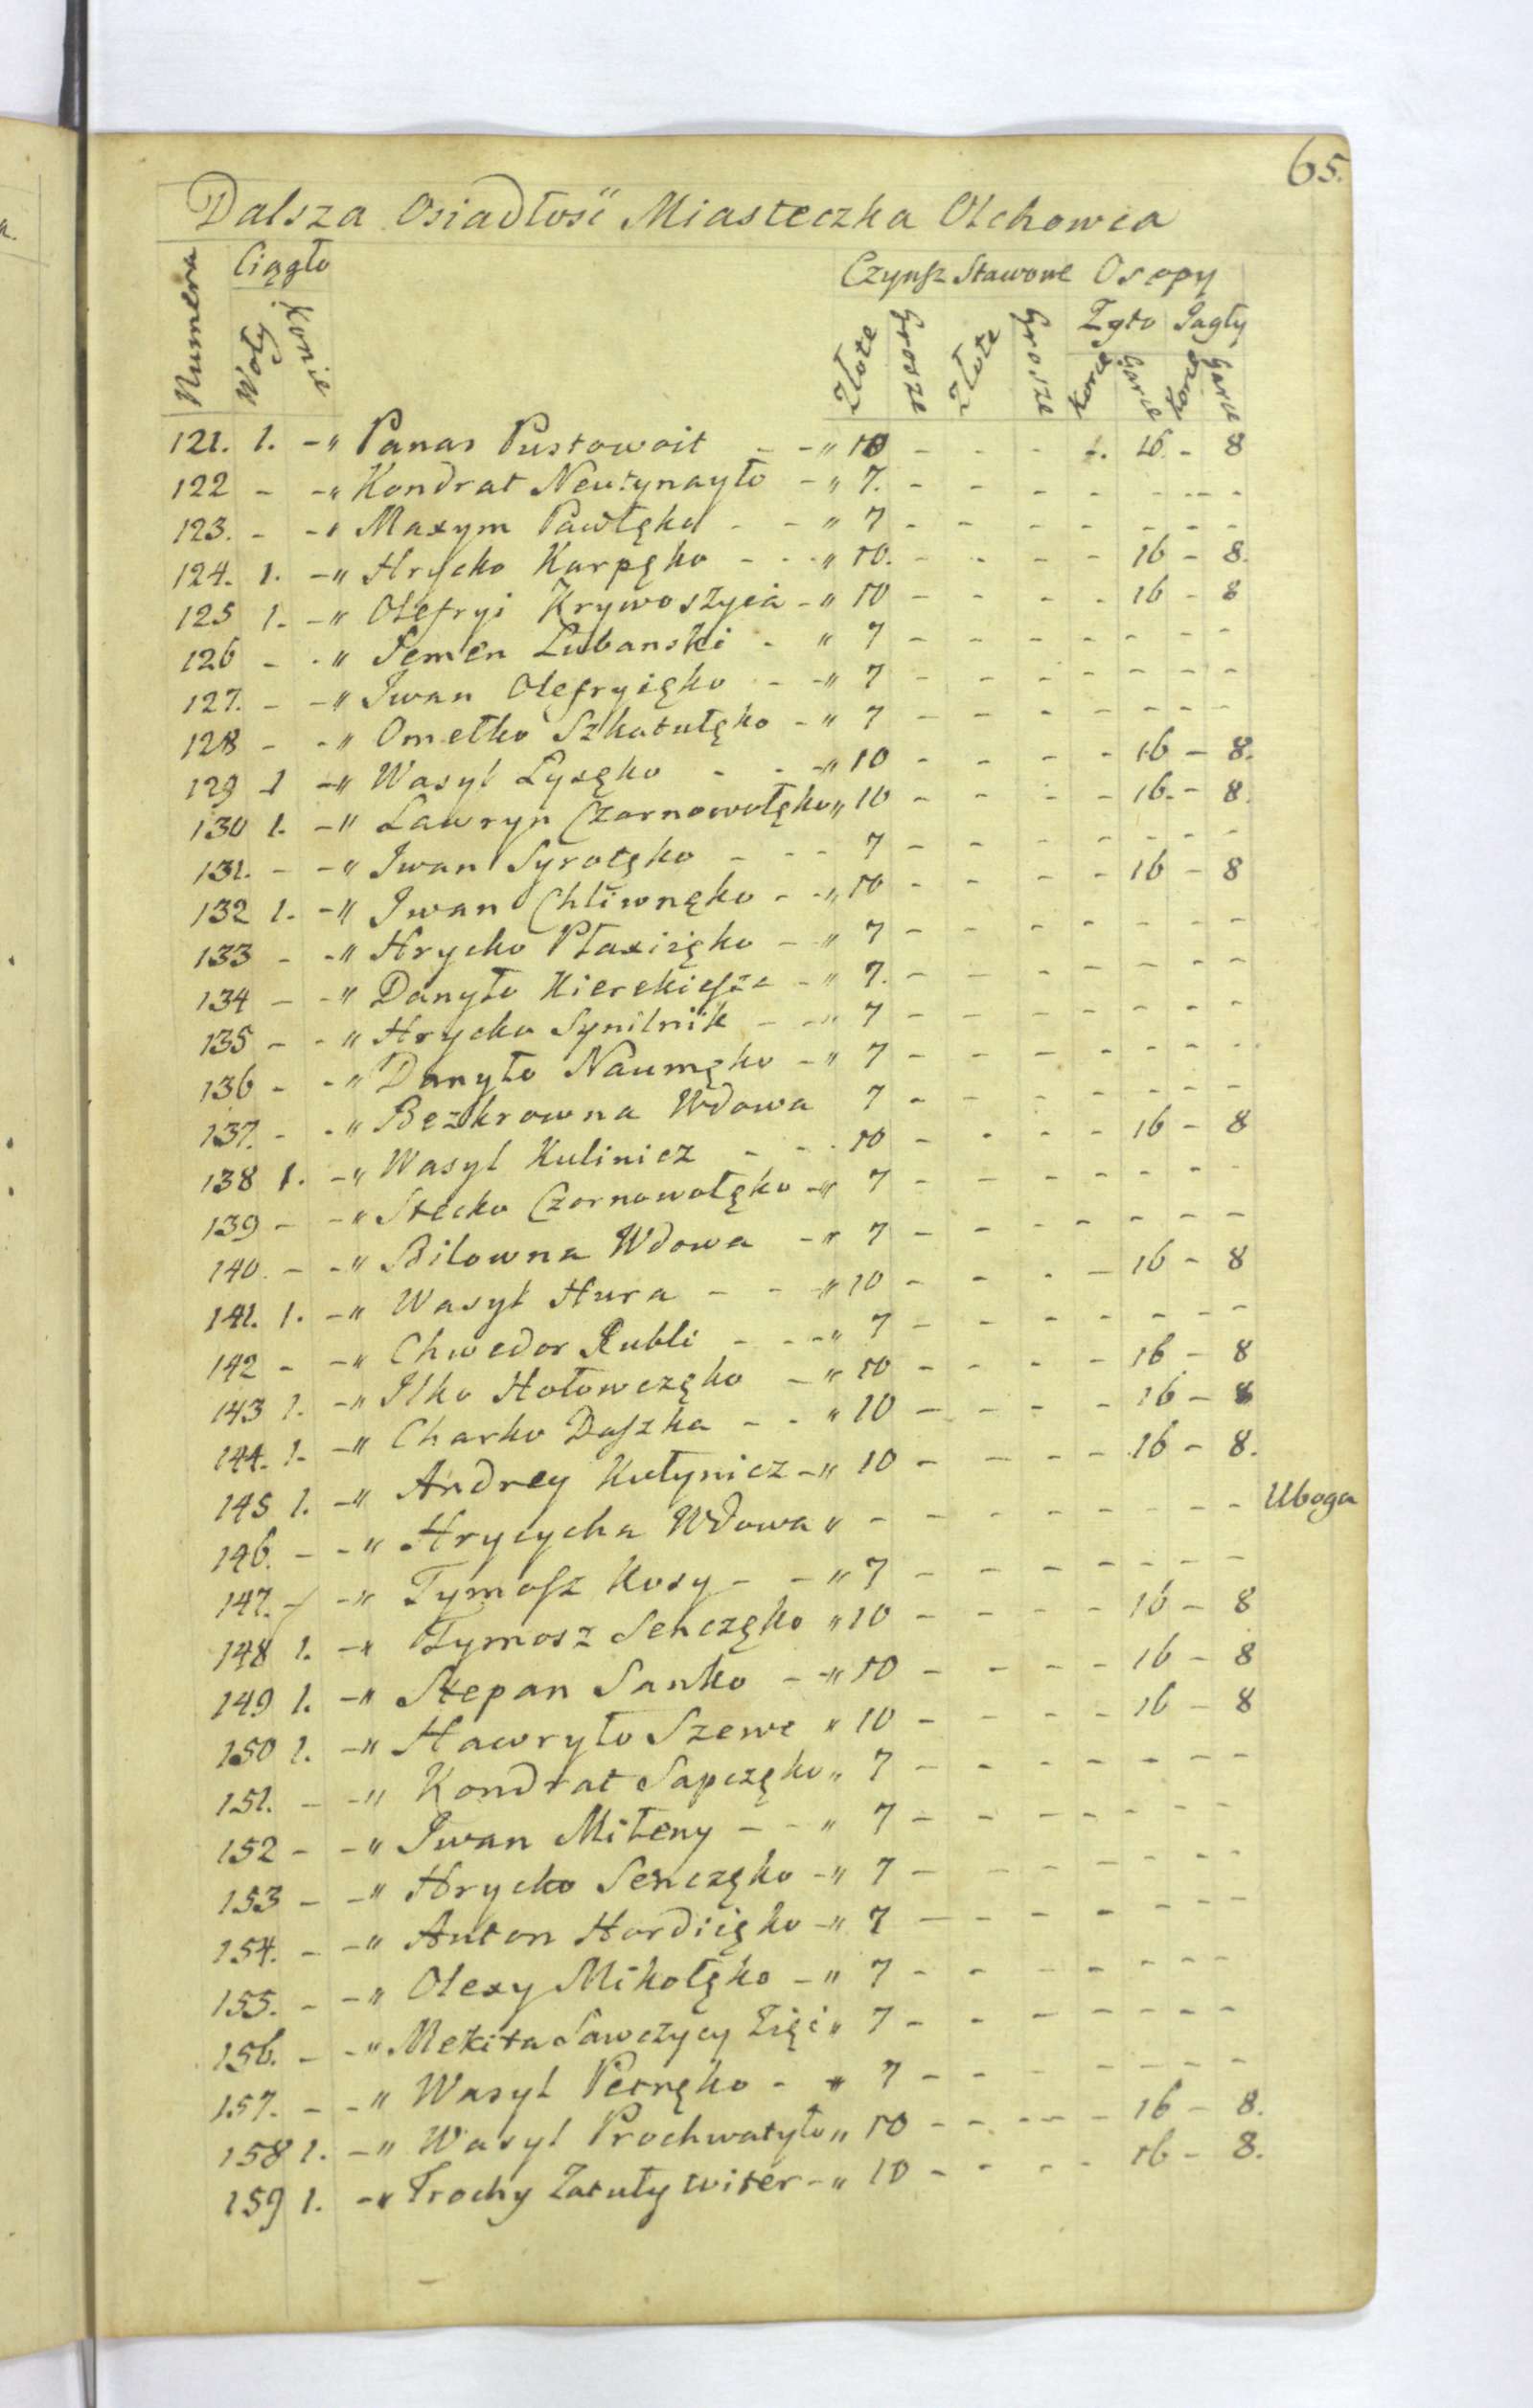 65.
Dalsza Osiadłość Miasteczka Olchowca
Numera Ciągło Woły Konie Czynsz Stawowe Osepy
Złote Groszy Złote Groszy Żyto Jagły
Korce Garce Korce Garce
121. 1. -„ Panas Pustowoit - -„ 10 - - - -. 16. - 8
122 - -„ Kondrat Neużynayło -„ 7. - - - - - - -
123. - -„ Maxym Pawlęko - -„ 7 - - - - - - -
124. 1. -„ Hrycko Karpęko - -„ 10. - - - - 16 - 8.
125 1. -„ Olefryi Krywoszyia -„ 10 - - - - 16 - 8
126 - -„ Semen Lubanski - „ 7 - - - - - - -
127. - -„ Iwan Olefryięko - -„ 7 - - - - - - -
128 - -„ Omelko Szkatulęko -„ 7 - - - - - - -
129 1 -„ Wasyl Lysęko - - -„ 10 - - - - 16 - 8.
130 1. -„ Lawryn Czornowolęko „ 10 - - - - 16. - 8.
131. - -„ Iwan Syrotęko - - - 7 - - - - - - -
132 1. -„ Iwan Chliwnęko - -„ 10 - - - - 16 - 8
133 - -„ Hrycko Płaxiięko -„ 7 - - - - - - -
134 - -„ Danyło Kierekiesza -„ 7. - - - - - - -
135 - -„ Hrycko Synilnik - -„ 7 - - - - - - -
136 - -„ Danyło Naumęko -„ 7 - - - - - - -
137. - -„ Bezkrowna Wdowa 7 - - - - - - -
138 1. -„ Wasyl Kulinicz - - - 10 - - - - 16 - 8
139 - -„ Stecko Czornowolęko -„ 7 - - - - - - -
140. - -„ Bilowna Wdowa -„ 7 - - - - - - -
141. 1. -„ Wasyl Hura - - -„ 10 - - - - 16 - 8
142 - -„ Chwedor Rubli - - -„ 7 - - - - - - -
143 1. -„ Ilko Hołowczęko -„ 10 - - - - 16 - 8
144. 1. -„ Charko Daszka - -„ 10 - - - - 16 - 8
145 1. -„ Andrey Kułynicz -„ 10 - - - - 16 - 8.
146. - -„ Hrycycha Wdowa „ - - - - - - - - Uboga
147. - -„ Tymosz Kosy - -„ 7 - - - - - - -
148 1. -„ Tymosz Senczęko „ 10 - - - - 16 - 8
149 1. -„ Stepan Sanko - -„ 10 - - - - 16 - 8
150 1. -„ Hawryło Szewc „ 10 - - - - 16 - 8
151. - -„ Kondrat Sapczęko „ 7 - - - - - - -
152 - -„ Iwan Miłeny - -„ 7 - - - - - - -
153 - -„ Hrycko Senczęko -„ 7 - - - - - - -
154. - -„ Anton Hordiięko -„ 7 - - - - - - -
155. - -„ Olexy Mikołęko -„ 7 - - - - - - -
156. - -„ Mekita Sawczycy Zięć „ 7 - - - - - - -
157. - -„ Wasyl Petręko - „ 7 - - - - - - -
158 1. -„ Wasyl Prochwatyło „ 10 - - - - - 16 - 8.
159 1. -„ Trochy Zatuływiter -„ 10 - - - - 16 - 8.